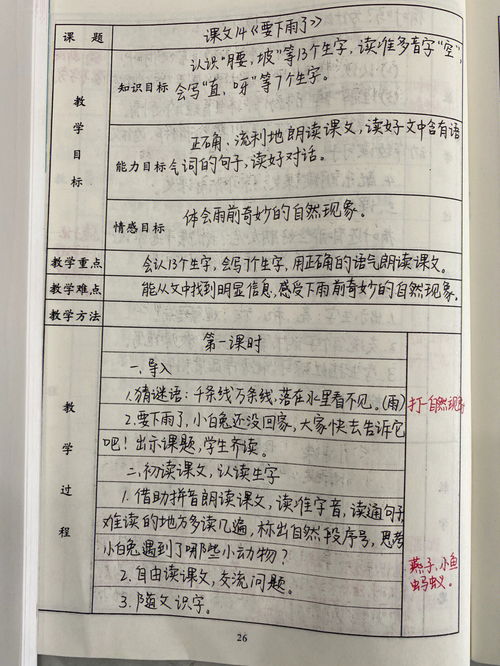 课 题 课文14《要下雨了》
教学目标
知识目标 认识"腰,坡"等13个生字,读准多音字"空",
会写"直,呀"等7个生字。
正确、流利地朗读课文,读好文中含有语
能力目标 气词的句子,读好对话。
情感目标 体会雨前奇妙的自然现象。
教学重点 会认13个生字,会写7个生字,用正确的语气朗读课文。
教学难点 能从文中找到明显信息,感受下雨前奇妙的自然现象。
教学方法
教学过程
第一课时
一、导入
1.猜谜语:千条线万条线,落在水里看不见。(雨) 打一自然现象
2.要下雨了,小白兔还没回家,大家快去告诉它
吧!出示课题,学生齐读。
二、初读课文,认读生字
1.借助拼音朗读课文,读准字音,读通句子,
难读的地方多读几遍,标出自然段序号,思考
小白兔遇到了哪些小动物? 燕子、小鱼
蚂蚁。
2.自由读课文,交流问题。
3.随文识字。
26